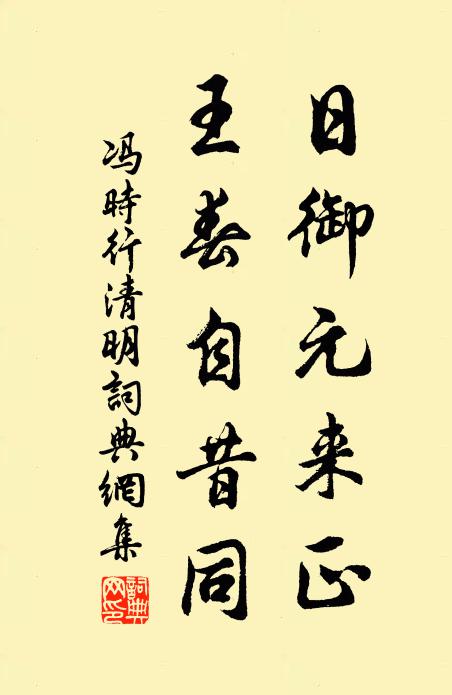 日御元来正
王春自昔同
冯時行清明詞典網集
詞典网印